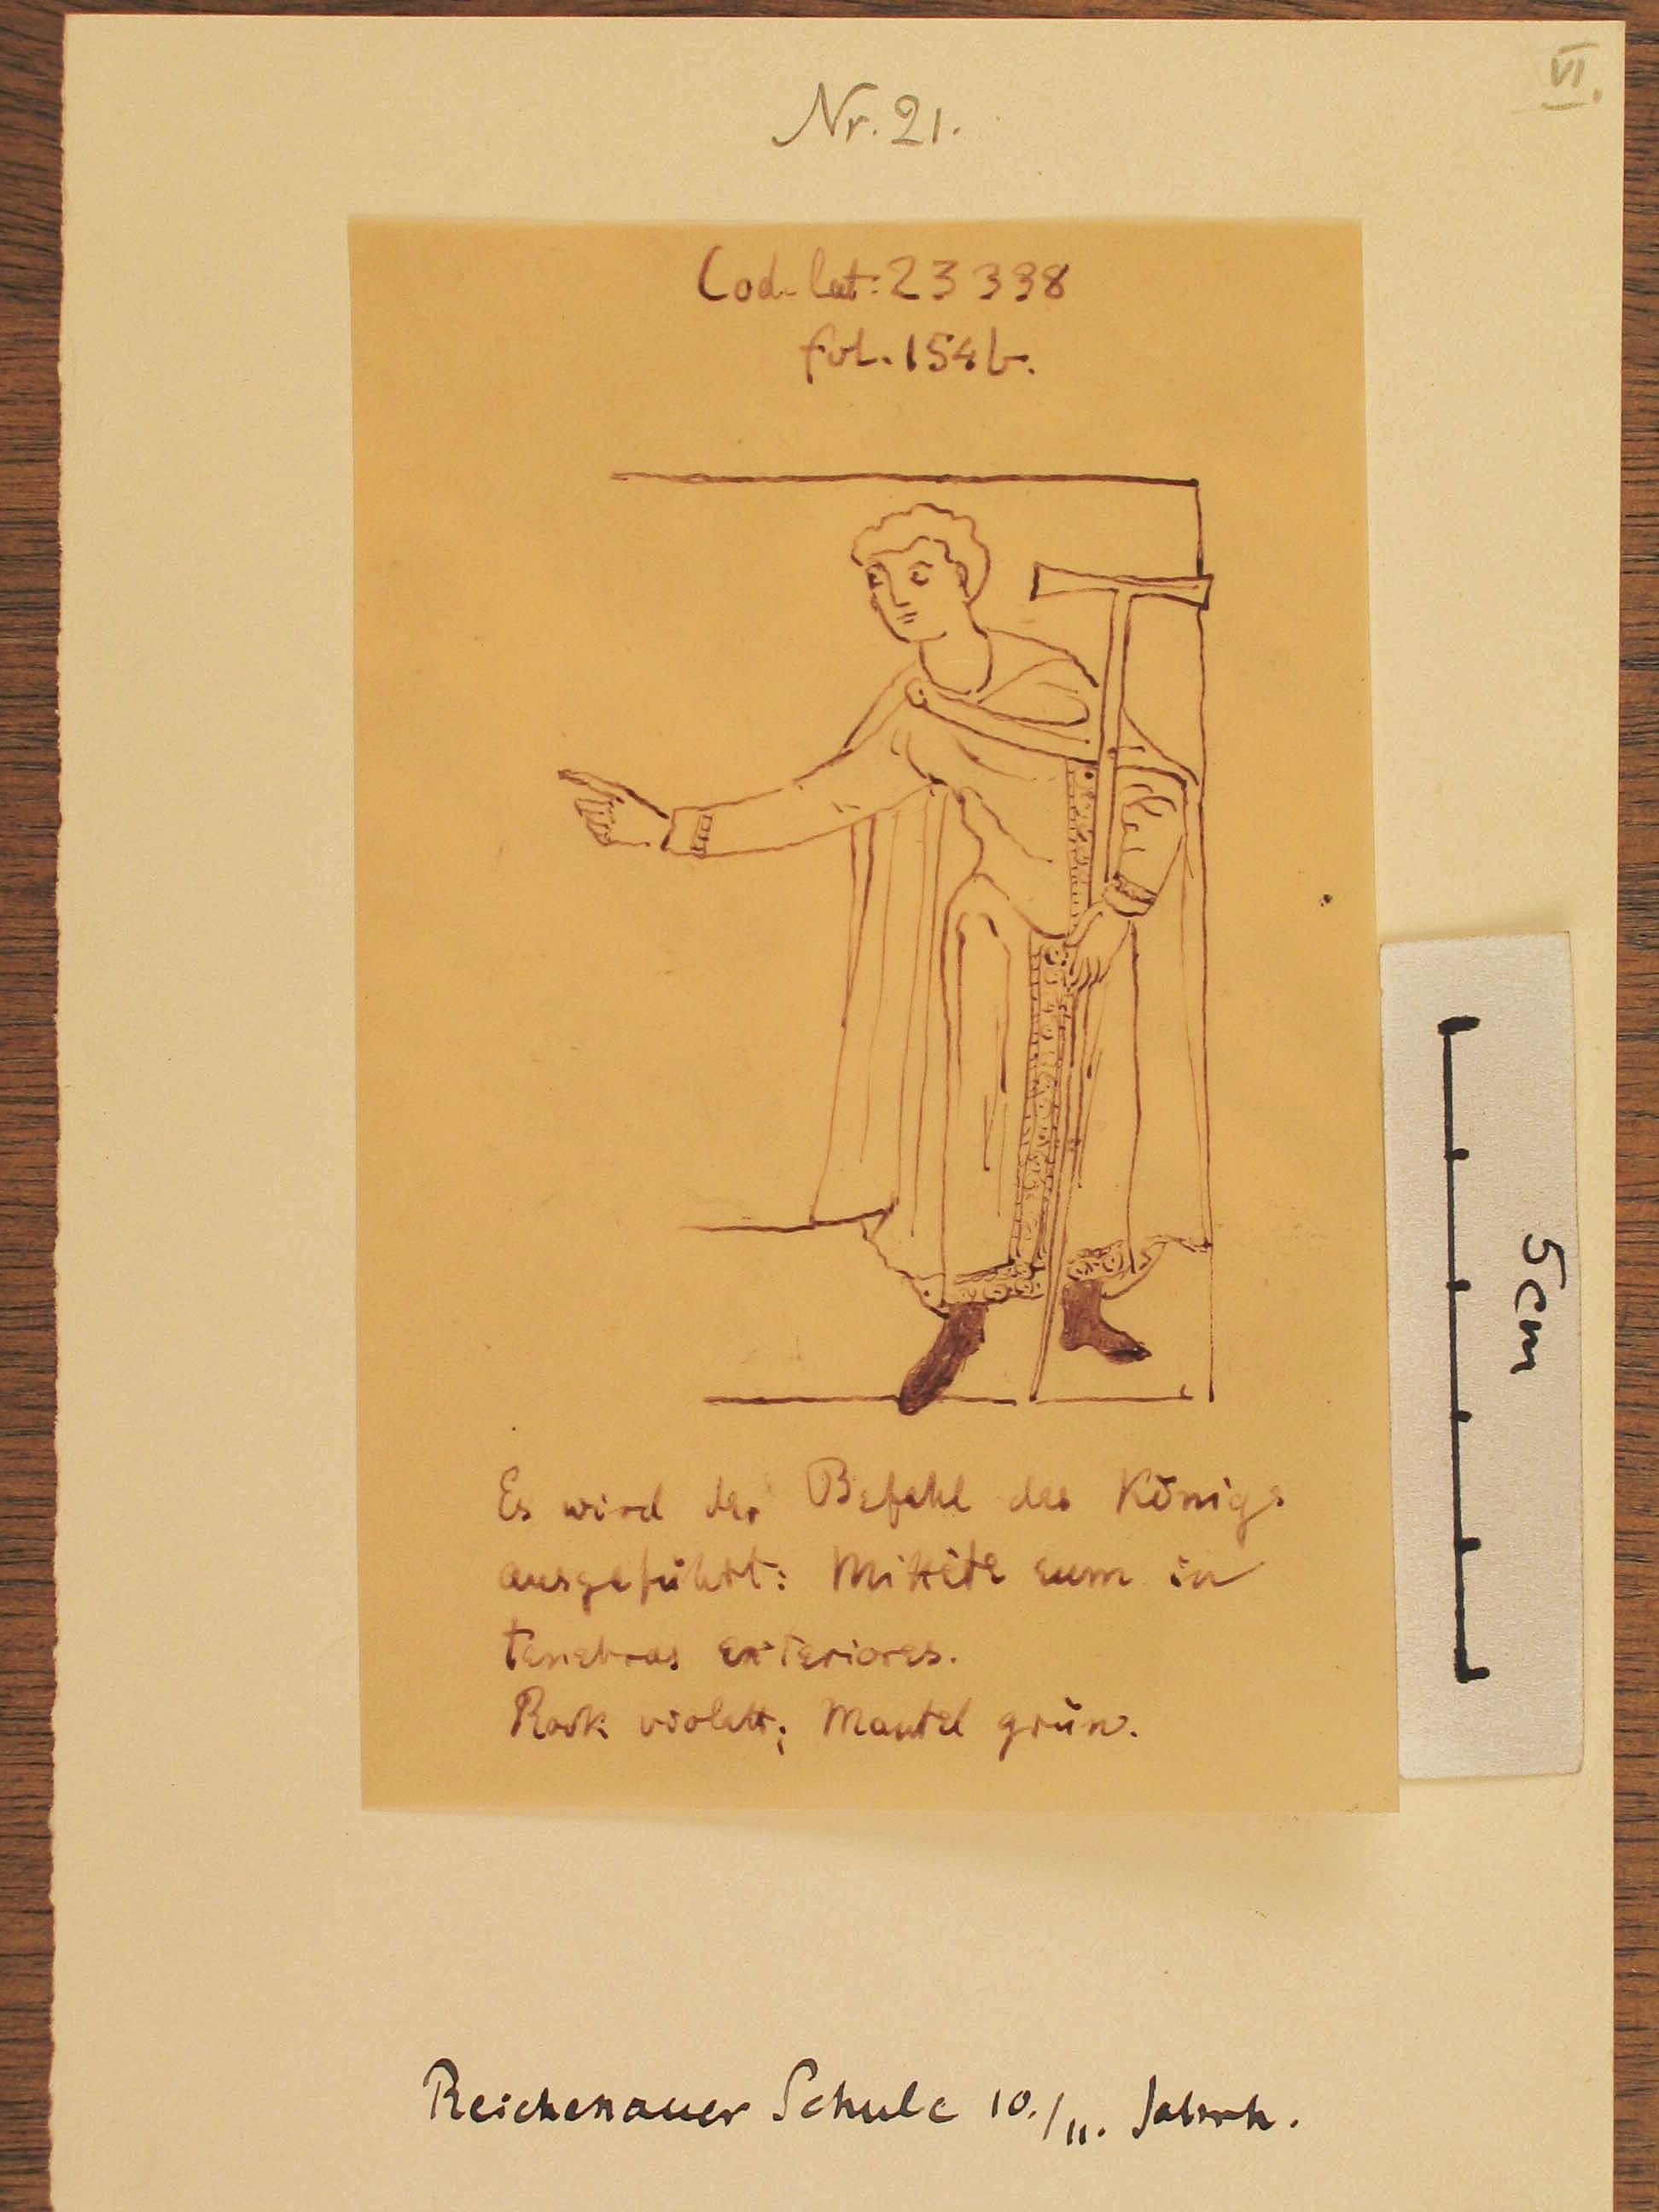 VI.
Nr. 21.
Cod. lat: 23338
fol. 154b.
5cm
Es wird der Befehl des Königs
ausgeführt: Mittite eum in
tenebras exteriores.
Rock violett; Mantel grün.
Reichenauer Schule 10./11. Jahrh.